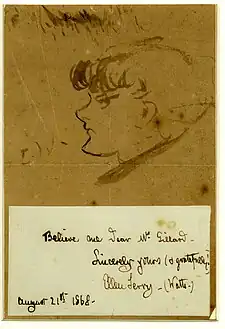 Believe me Dear Mr Gillard -
Sincerely yours (& gratefully)
Ellen Terry - (Watts -)
August 21st 1868 -